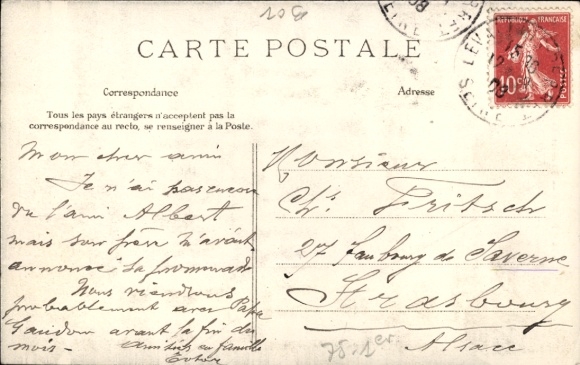 109
CARTE POSTALE
Correspondance
Adresse
Tous les pays étrangers n'acceptent pas la
correspondance au recto, se renseigner à la Poste.
REPUBLIQUE FRANÇAISE
10c
POSTES
Mon cher ami
Je n'ai pas encore
vu l'ami Albert
mais son frère m'avait
annoncé sa promenade
Nous viendrons
probablement avec Papa
Gaudon avant la fin du
mois -
Amitiés en famille
Monsieur
Ch. Fritsch
27 Faubourg de Saverne
Strasbourg
Alsace
75-1er